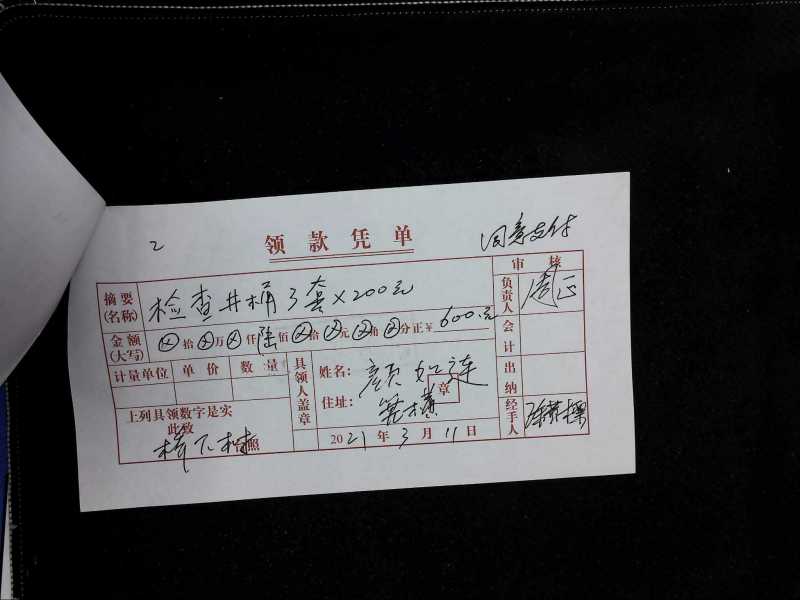 2
领款凭单
同意支付
摘要(名称) 检查井桶3套×200元
金额(大写) ⊗拾⊗万⊗仟陆佰⊗拾⊗元⊗角⊗分正¥600.元
计量单位 单价 数量
上列具领数字是实
此致
台照
具领人盖章
姓名: 颜如连
住址:
章
2021年3月11日
审核
负责人 周正
会计
出纳
经手人